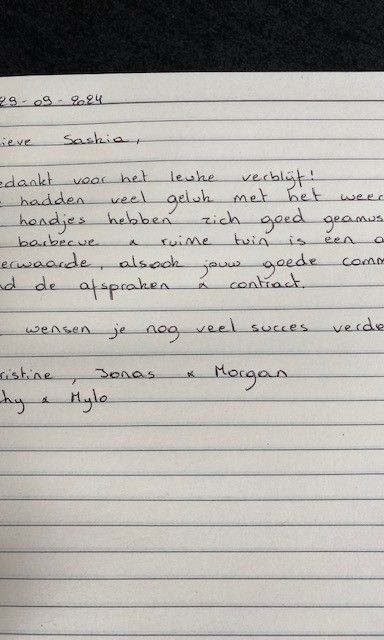 29-09-2024
ieve Saskia,
edankt voor het leuke verblijf!
hadden veel geluk met het weer
hondjes hebben zich goed geamus
barbecue & ruime tuin is een a
erwaarde, alsook jouw goede comm
nd de afspraken & contract.
wensen je nog veel succes verde
ristine, Jonas & Morgan
hy & Mylo